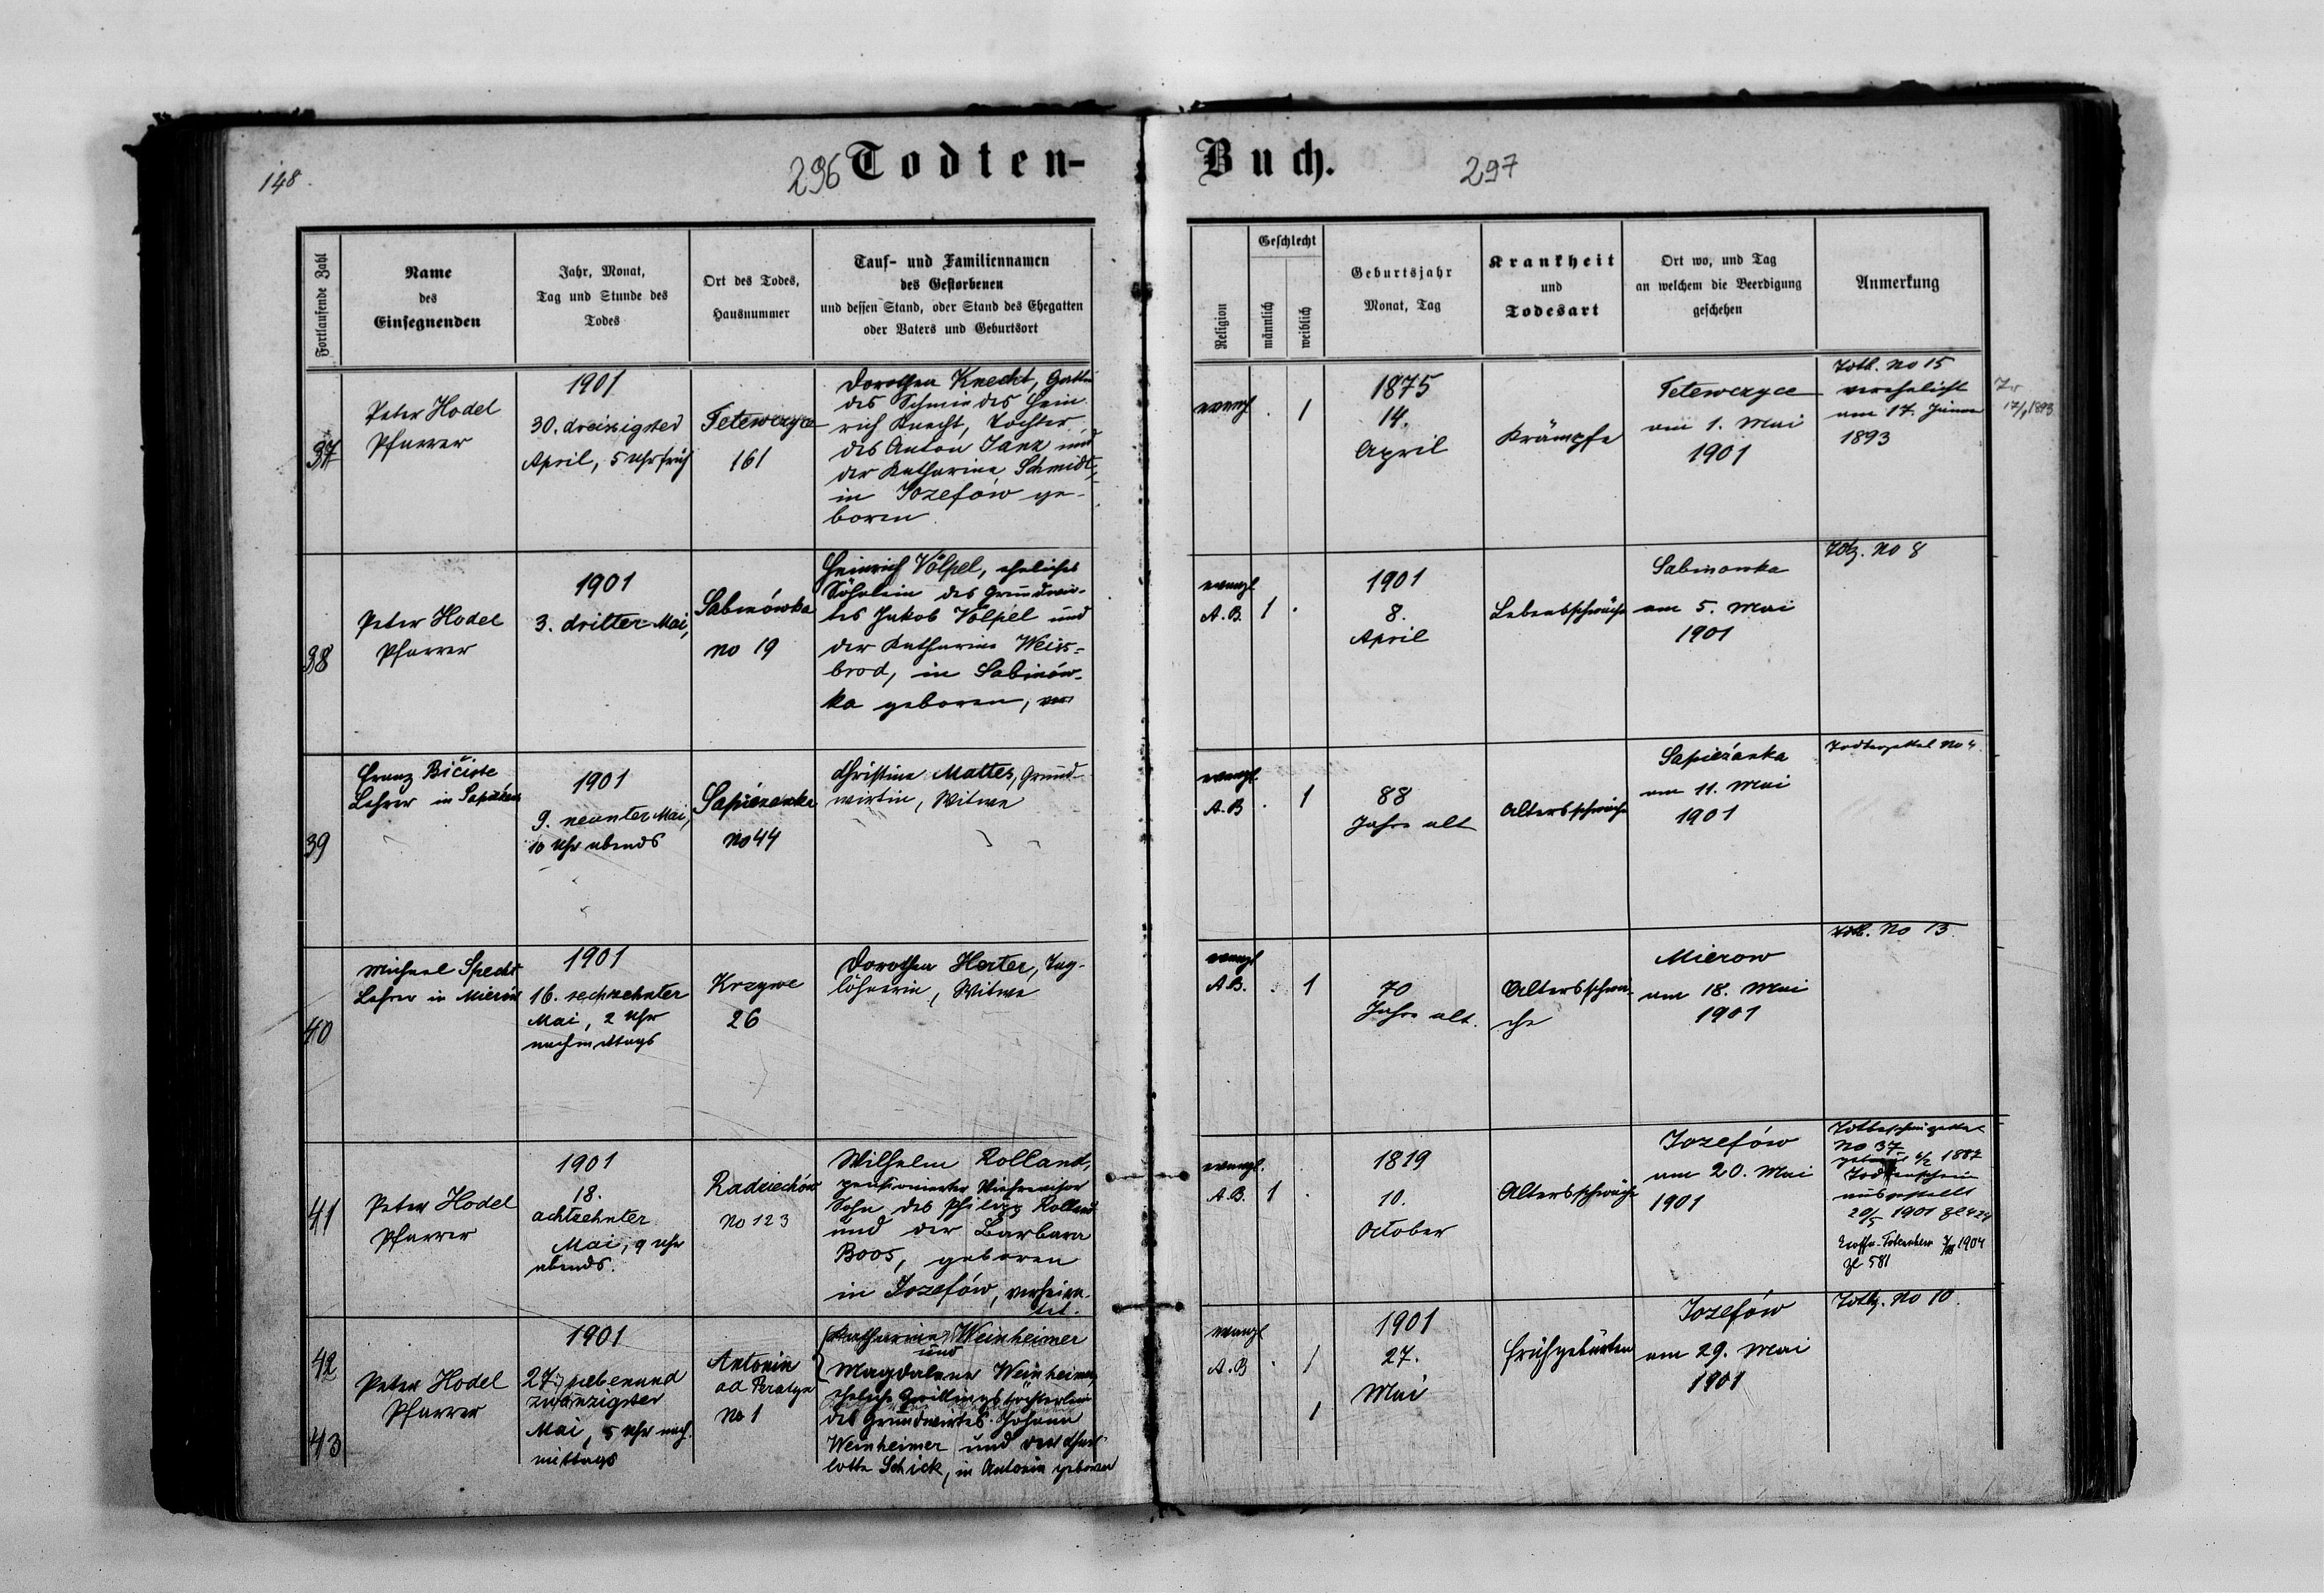 148.
296
Todten-
Buch.
297
Fortlaufende Zahl
Name
des
Einsegnenden
Jahr, Monat,
Tag und Stunde des
Todes
Ort des Todes,
Hausnummer
Tauf- und Familiennamen
des Gestorbenen
und dessen Stand, oder Stand des Ehegatten
oder Vaters und Geburtsort
Religion
Geschlecht
männlich
weiblich
Geburtsjahr
Monat, Tag
Krankheit
und
Todesart
Ort wo, und Tag
an welchem die Beerdigung
geschehen
Anmerkung
37
Peter Hodel
Pfarrer
1901
30. dreissigster
April, 5 Uhr früh
Tetewczyce
161
Dorothea Knecht, Gattin
des Schmiedes Hein
rich Knecht, Tochter
des Anton Janz und
der Katharina Schmidt,
in Jozefów ge-
boren
evangl
1
1875
14.
April
Krämpfe
Tetewczyce
am 1. Mai
1901
Totb. No 15
verehelicht
am 17. Jänner
1893
17/1 1893
38
Peter Hodel
Pfarrer
1901
3. dritter Mai,
Sabinówka
no 19
Heinrich Völpel, eheliches
Söhnlein des Grundwir-
tes Jakob Völpel und
der Katharina Weiss-
brod, in Sabinów-
ka geboren,
evangl
A.B.
1
1901
8.
April
Lebensschwäche
Sabinowka
am 5. Mai
1901
No 8
39
Franz
Lehrer in
1901
9. neunter Mai,
10 Uhr abends
Sapiezanka
No 44
Christina Mattes, Grund-
wirtin, Witwe
evangl.
A.B
1
88
Jahre alt
Altersschwäche
Sapieżanka
am 11. Mai
1901
Todtenzettel No 4.
40
Michael Specht
Lehrer in Mierów
1901
16. sechzehnter
Mai, 2 Uhr
nachmittags
Krzywe
26
Dorothea Herter, Tag-
löhnerin, Witwe
evangl
A.B.
1
70
Jahre alt.
Altersschwä-
che
Mierow
am 18. Mai
1901
Totb. No 13.
41
Peter Hodel
Pfarrer
1901
18.
achtzehnter
Mai, 9 Uhr
abends.
Radziechów
No 123
Wilhelm Rolland,
pensionierter Viehrevisor
Sohn des Philipp Rolland
und der Barbara
Boos, geboren
in Jozefów, verheira-
tet.
evangl.
A.B.
1
1819
10.
October
Altersschwäche
Jozefów
am 20. Mai
1901
No 37
1887
Todtenschein
ausgestellt
20/5 1901 Zl 424
1904
Zl 581
42
43
Peter Hodel
Pfarrer
1901
27. siebenund
zwanzigster
Mai, 5 Uhr nach.
mittags
Antonin
ad Peratyn
No 1
Katharina Weinheimer
und
Magdalena Weinheimer,
eheliche Zwillingstöchterlein
des Grundwirtes Johann
Weinheimer und der Char-
lotte Schick, in Antonin geboren
evangl
A.B
1
1
1901
27.
Mai
Frühgeburten
Jozefów
am 29. Mai
1901
Totbz. No 10.